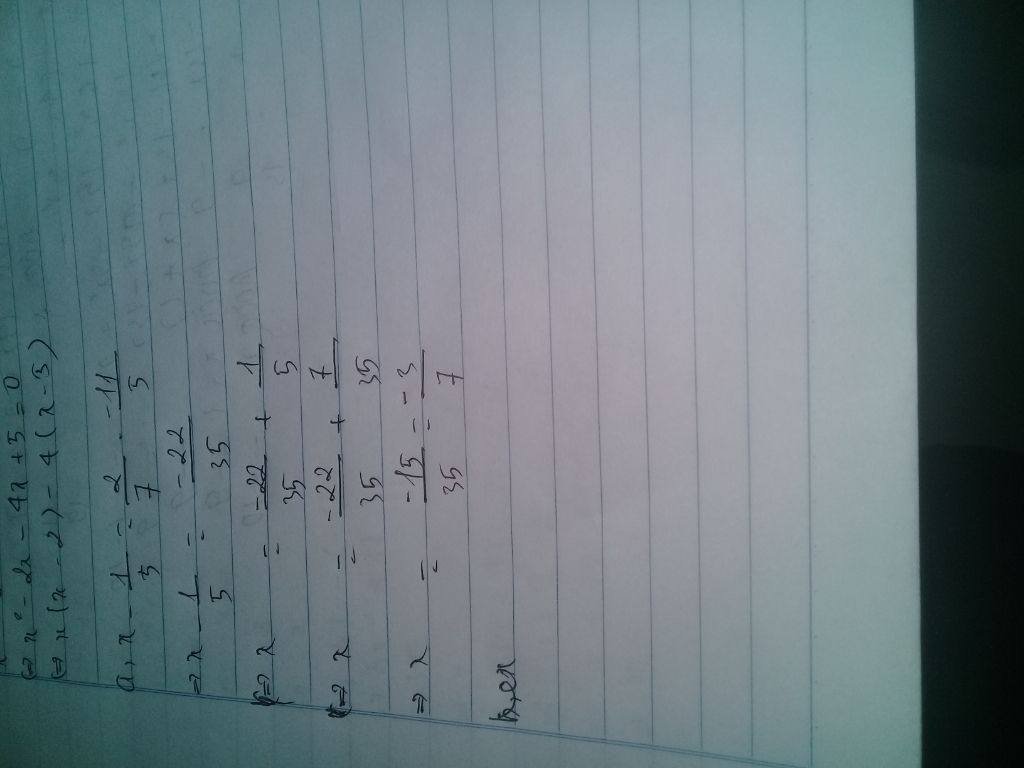 ⇔ x² - 2x - 4x + 5 = 0
⇔ x(x - 2) - 4(x - 3)
a, x - 1/5 = 2/7 . -11/5
⇒ x - 1/5 = -22/35
⇒ x = -22/35 + 1/5
⇒ x = -22/35 + 7/35
⇒ x = -15/35 = -3/7